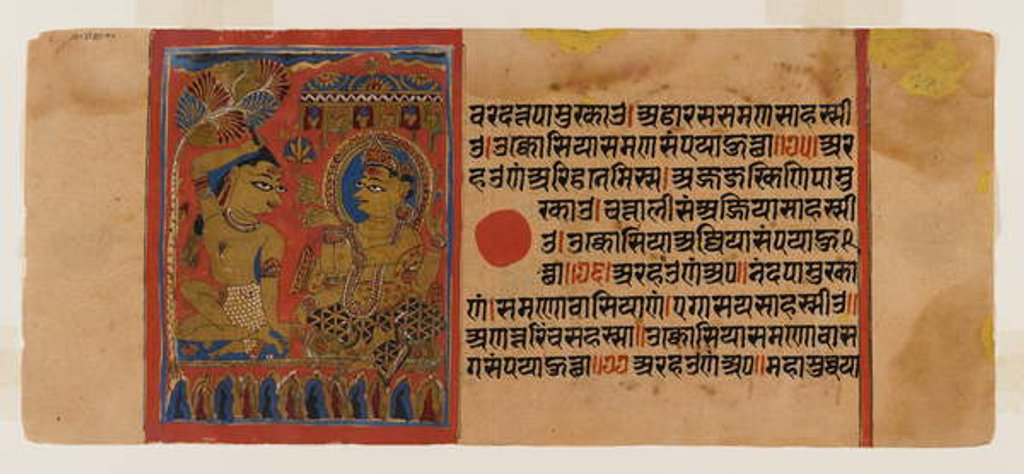 वरदत्तपामुरकाउ। अट्ठारससमणसाहस्सी
उ। उक्कोसियासमणसंपयाहुत्था॥७५॥ अर
हउणंअरिट्ठनेमिस्स। अज्जजरिकणिपामु
रकाउ। चत्तालीसंअज्जियासाहस्सी
उ। उक्कोसियाअज्जियासंपयाहु
त्था॥७६॥ अरहउणंअ०॥ नंदपामुरका
णं। समणोवासियाणं। एगासयसाहस्सीउ॥
अणत्तरिंचसहस्सा॥ उक्कोसियासमणोवास
गसंपयाहुत्था॥७७॥ अरहउणंअ०॥ महासुव्वया